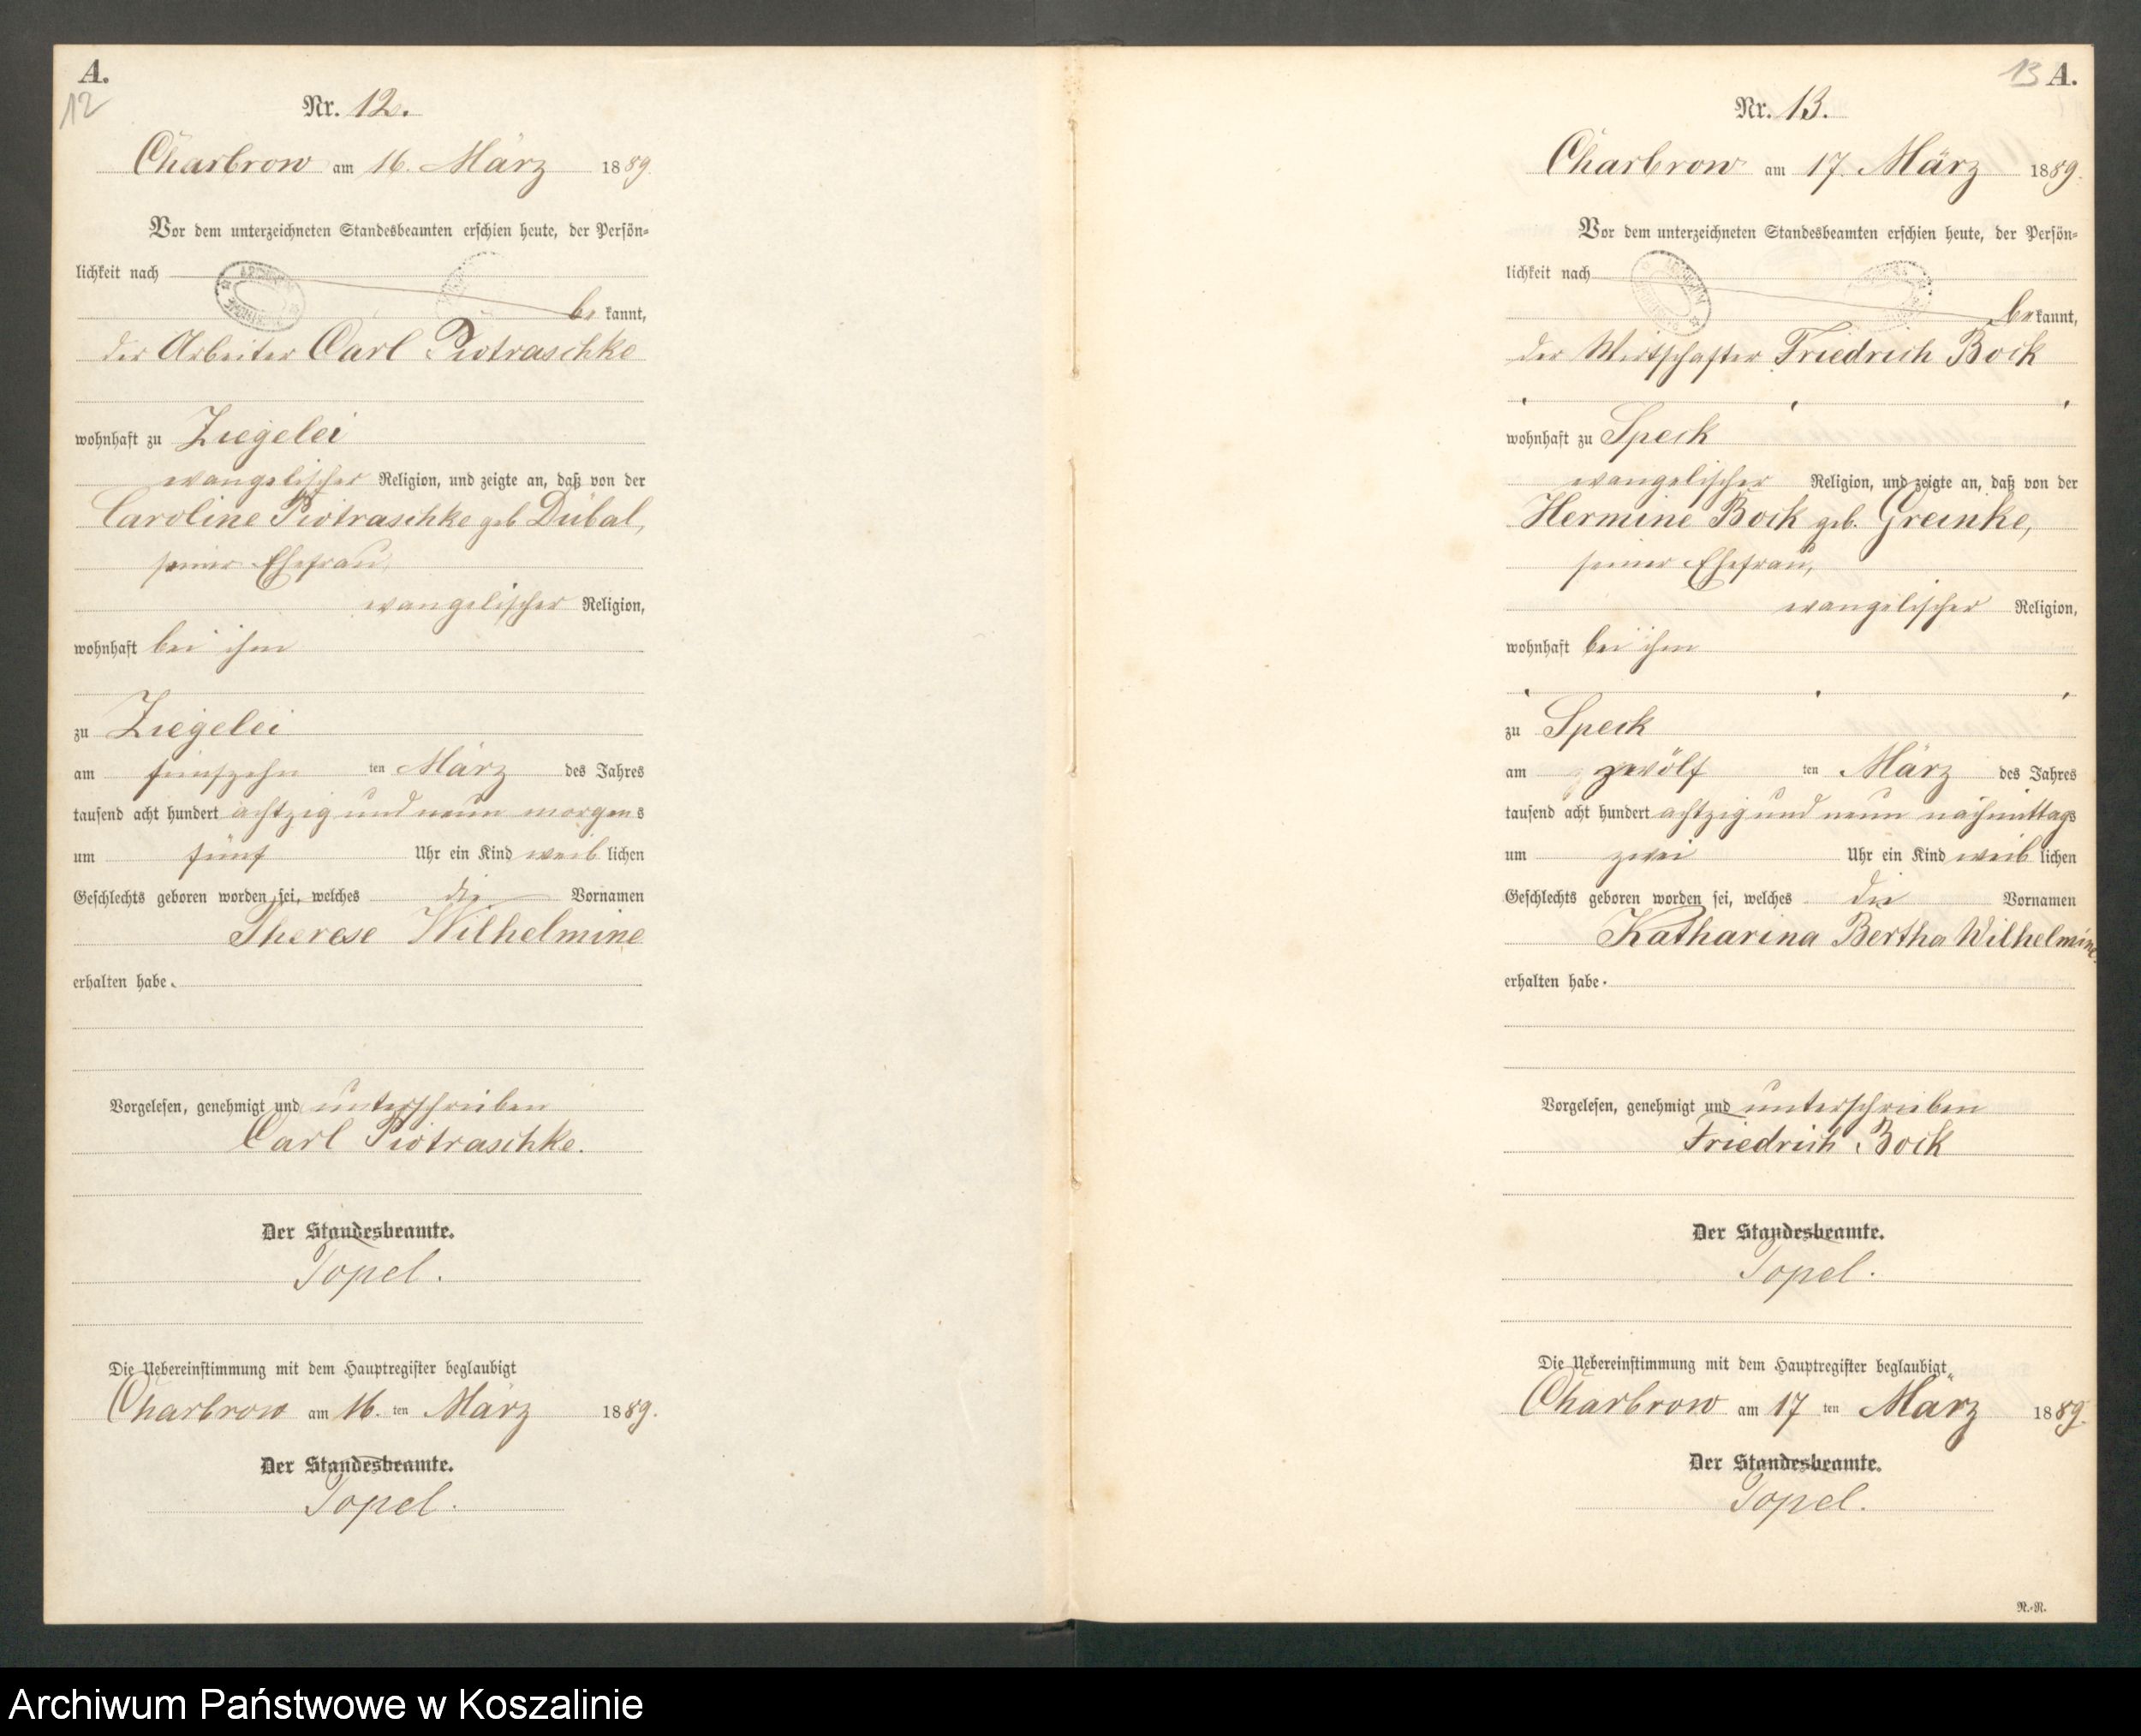 A.
12
Nr. 12.
Charbrow am 16. März 1889.
Vor dem unterzeichneten Standesbeamten erschien heute, der Persön-
lichkeit nach
be kannt,
der Arbeiter Carl Piotraschke
wohnhaft zu Ziegelei
evangelischer Religion, und zeigte an, daß von der
Caroline Piotraschke geb. Dübal,
seiner Ehefrau,
evangelischer Religion,
wohnhaft bei ihm
zu Ziegelei
am fünfzehn ten März des Jahres
tausend acht hundert achtzig und neun morgens
um fünf Uhr ein Kind weib lichen
Geschlechts geboren worden sei, welches die Vornamen
Therese Wilhelmine
erhalten habe.
Vorgelesen, genehmigt und unterschrieben
Carl Piotraschke.
Der Standesbeamte.
Topel.
Die Uebereinstimmung mit dem Hauptregister beglaubigt
Charbrow am 16. ten März 1889.
Der Standesbeamte.
Topel.
13 A.
Nr. 13.
Charbrow am 17. März 1889.
Vor dem unterzeichneten Standesbeamten erschien heute, der Persön-
lichkeit nach
be kannt,
der Wirtschafter Friedrich Bock
wohnhaft zu Speck
evangelischer Religion, und zeigte an, daß von der
Hermine Bock geb. Greinke,
seiner Ehefrau,
evangelischer Religion,
wohnhaft bei ihm
zu Speck
am zwölf ten März des Jahres
tausend acht hundert achtzig und neun nachmittags
um zwei Uhr ein Kind weib lichen
Geschlechts geboren worden sei, welches die Vornamen
Katharina Bertha Wilhelmine
erhalten habe.
Vorgelesen, genehmigt und unterschrieben
Friedrich Bock
Der Standesbeamte.
Topel.
Die Uebereinstimmung mit dem Hauptregister beglaubigt
Charbrow am 17 ten März 1889.
Der Standesbeamte.
Topel.
R.-R.
Archiwum Państwowe w Koszalinie